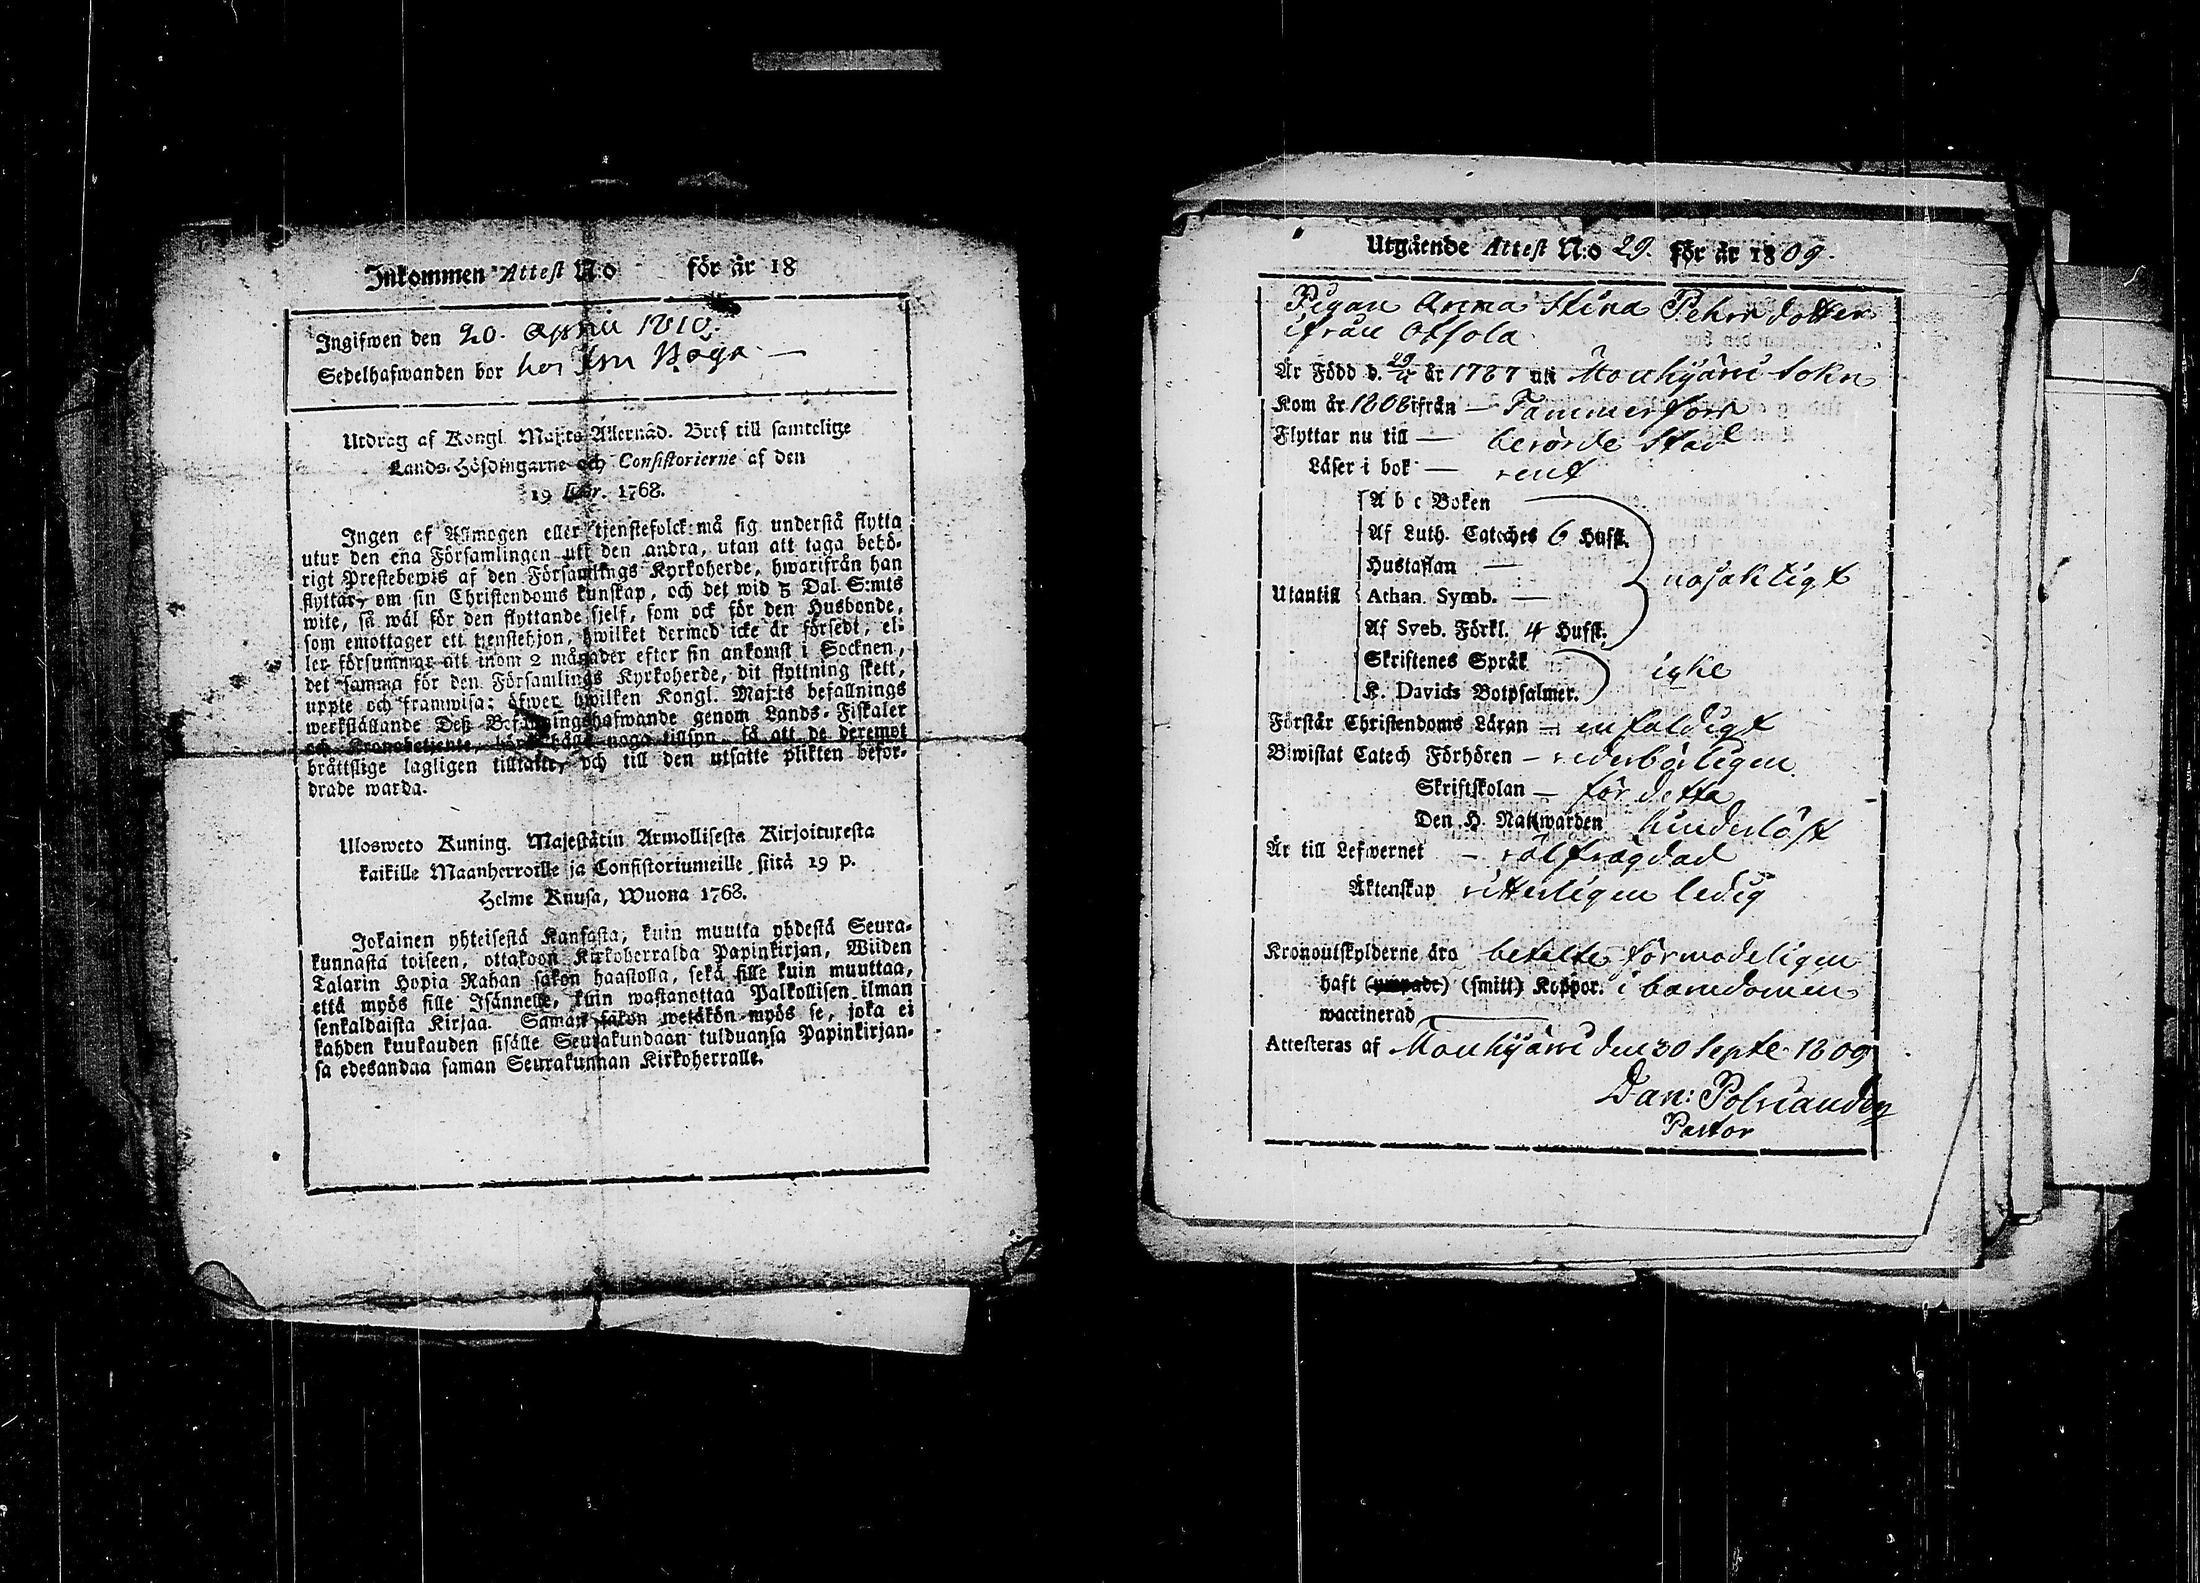 Inkommen Attest N:o för år 18
Ingifwen den 20. April 1810.
Sedelhafwanden bor hos
Utdrag af Kongl. Maj:ts Allernåd. Bref till samtelige
Lands-Höfdingarne och Consistorierne af den
19 Febr. 1768.
Ingen af Allmogen eller tjenstefolck må sig understå flytta
utur den ena Församlingen uti den andra, utan att taga behö-
rigt Prestebewis af den Församlings Kyrkoherde, hwarifrån han
flyttar, om sin Christendoms kunskap, och det wid 5 Dal. S:mts
wite, så wäl för den flyttande sjelf, som ock för den Husbonde,
som emottager ett tjenstehjon, hwilket dermed icke är försedt, el-
ler försummar att inom 2 månader efter sin ankomst i Socknen,
det samma för den Församlings Kyrkoherde, dit flyttning skett,
uppte och framwisa; öfwer hwilken Kongl. Maj:ts befallnings
werkställande Deß Befallningshafwande genom Lands-Fiskaler
och Kronobetjente, böra hafwa noga tillsyn, så att de deremot
bråttslige lagligen tilltalte, och till den utsatte plikten befor-
drade warda.
Ulosweto Kuning. Majestätin Armollisesta Kirjoituxesta
kaikille Maanherroille ja Consistoriumeille siitä 19 p.
Helme Kuusa, Wuona 1768.
Jokainen yhteisestä Kansasta, kuin muutta yhdestä Seura-
kunnasta toiseen, ottakoon Kirkoherralda Papinkirjan, Wiiden
Talarin Hopia Rahan sakon haastolla, sekä sille kuin muuttaa,
että myös sille Isännelle, kuin wastanottaa Palkollisen ilman
senkaldaista Kirjaa. Saman sakon wetäkön myös se, joka ei
kahden kuukauden sisälle Seurakundaan tulduansa Papinkirjan-
sa edesandaa saman Seurakunnan Kirkoherralle.
Utgående Attest N:o 29. för år 1809.
Pigan Anna Stina Pehrsdotter
ifrån Ossola
Är Född d. år 1787 uti Mouhijärvi Sokn
Kom år 1808 ifrån — Tammerfors
Flyttar nu till — berörde Stad
Läser i bok — rent
A b c Boken
Af Luth. Cateches 6 Hufst.
Hustaflan —
Utantill Athan. Symb. — nojaktigt
Af Sveb. Förkl. 4 Hufst.
Skriftenes Språk icke
K. Davids Botpsalmer.
Förstår Christendoms Läran — enfaldigt
Biwistat Catech Förhören — vederbörligen
Skriftskolan — för detta
Den H. Nattwarden hinderlöst
Är till Lefwernet — välfrägdad
Äktenskap vitterligen ledig
Kronoutskylderne äro betalte förmodeligen
haft (ympade) (smitt) Koppor. i barndomen
waccinerad —
Attesteras af Mouhijärvi den 30 Septe. 1809
Dan: Polviander
Pastor